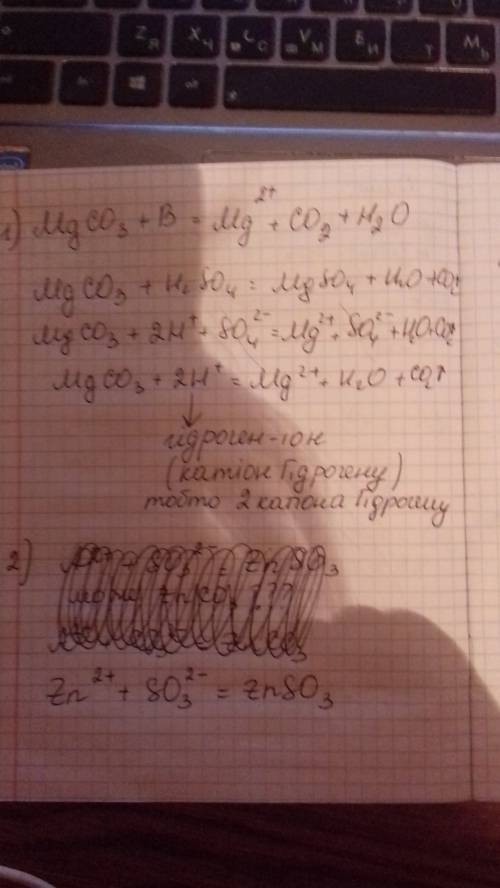 Z Я
X Ч
C С
V М
Б И
Т
M Ь
1) MgCO3 + B = Mg2+ + CO2 + H2O
MgCO3 + H2SO4 = MgSO4 + H2O + CO2
MgCO3 + 2H+ + SO4 2- = Mg2+ + SO4 2- + H2O + CO2↑
MgCO3 + 2H+ = Mg2+ + H2O + CO2↑
↓
гідроген-іон
(катіон Гідрогену)
тобто 2 катіона Гідрогену
2)
Zn2+ + SO3 2- = ZnSO3